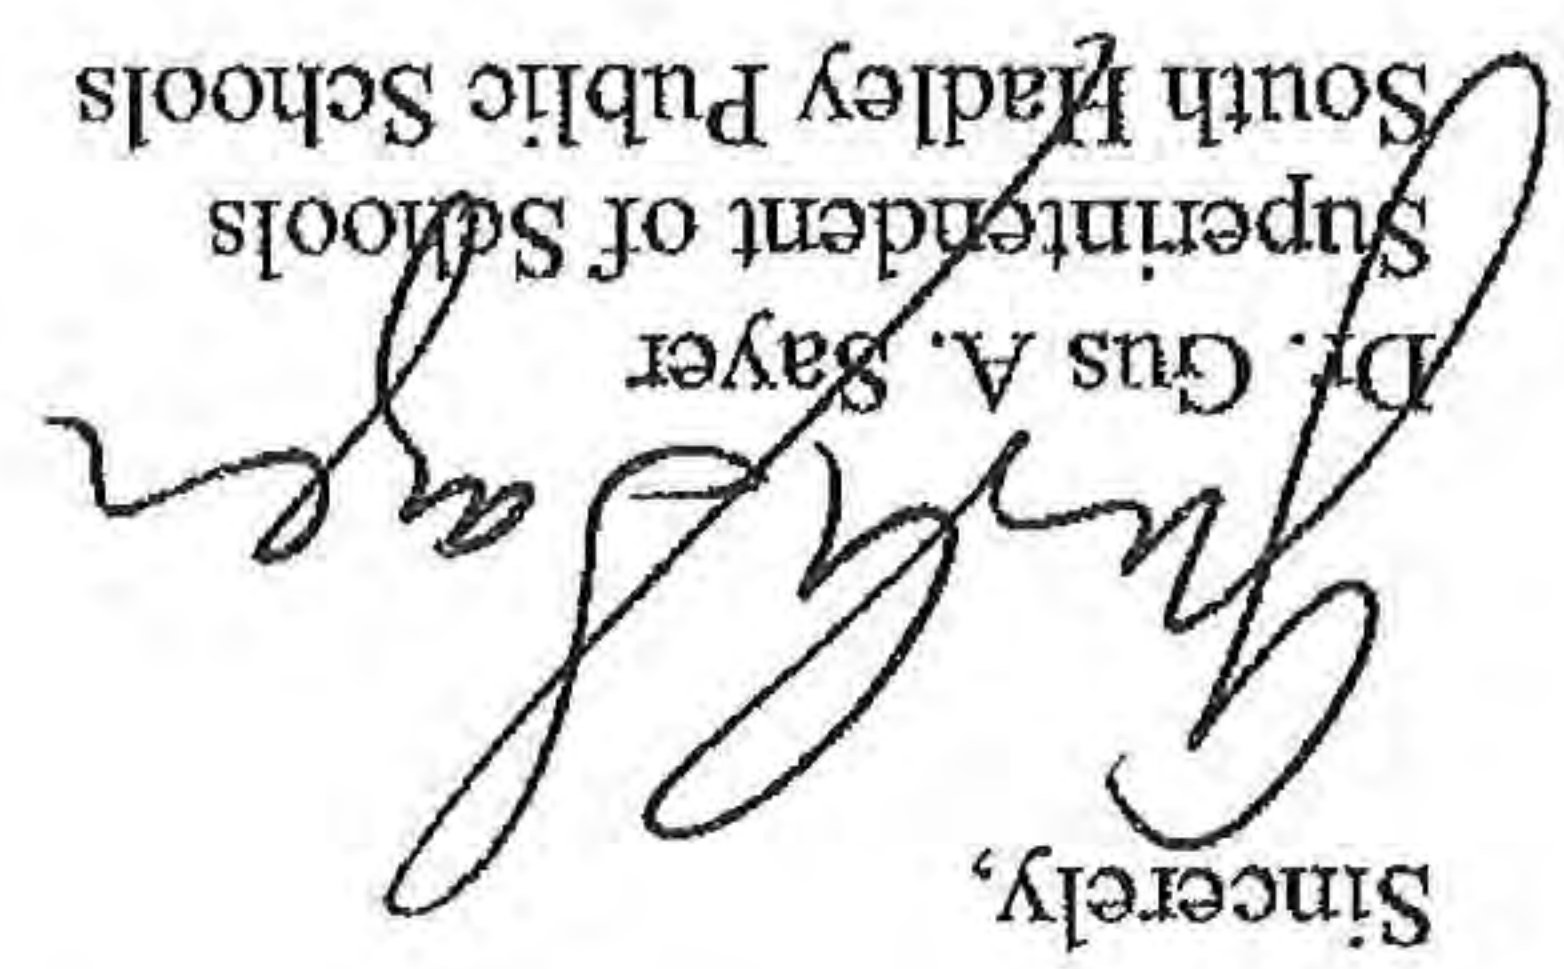 Sincerely,
Gus A. Sayer
Dr. Gus A. Sayer
Superintendent of Schools
South Hadley Public Schools